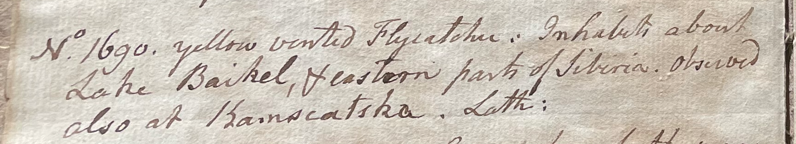 No. 1690. yellow vented Flycatcher: Inhabits about
Lake Baikel, & eastern parts of Siberia. observed
also at Kamscatska. Lath: